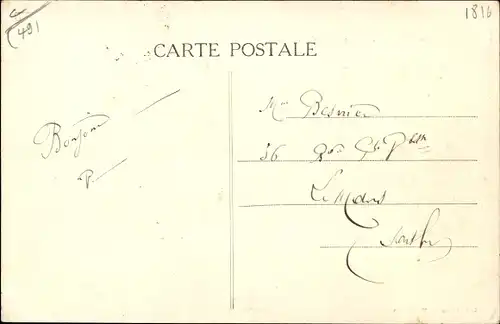 491
1816
CARTE POSTALE
Bonjour
P.
Mme Besnier
56
Le Mans
Sarthe